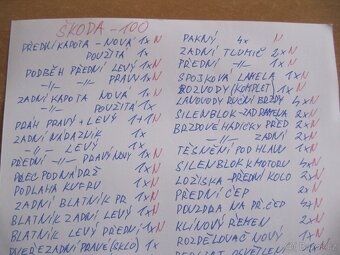 ŠKODA - 100
PŘEDNÍ KAPOTA - NOVÁ 1x N
POUŽITÁ 1x
PODBĚH PŘEDNÍ LEVÝ 1x N
-//- -//- PRAVÝ 1x N
ZADNÍ KAPOTA NOVÁ 1x N
-//- -//- POUŽITÁ 1x
PRÁH PRAVÝ + LEVÝ 1+1 N
ZADNÍ NÁRAZNÍK 1x
-//- LEVÝ 1x
PŘEDNÍ -//- PRAVÝ NOVÝ 1x N
PODLAHA KUFRU 1x N
ZADNÍ BLATNÍK PR. 1x N
BLATNÍK ZADNÍ LEVÝ 1x N
BLATNÍK LEVÝ PŘEDNÍ 1x N
DVEŘE ZADNÍ PRAVÉ (SKLO) 1x
PAKNY 4x N
ZADNÍ TLUMIČ 2x N
PŘEDNÍ -//- 1x N
SPOJKOVÁ LAMELA 1x N
ROZVODY (KOMPLET) 1x N
LANOVODY RUČNÍ BRZDY 4x N
SILENBLOK - ZAD. RAMENA 2x N
BRZDOVÉ HADIČKY PŘED 2x N
-//- ZADNÍ 2x N
TĚSNĚNÍ POD HLAVU 1x N
SILENBLOK MOTORU 4x N
LOŽISKA PŘEDNÍ KOLO 2x N
PŘEDNÍ ČEP 2x N
POUZDRA NA PŘ. ČEP 4x N
KLÍNOVÝ ŘEMEN 2x N
ROZDĚLOVAČ NOVÝ 1x N